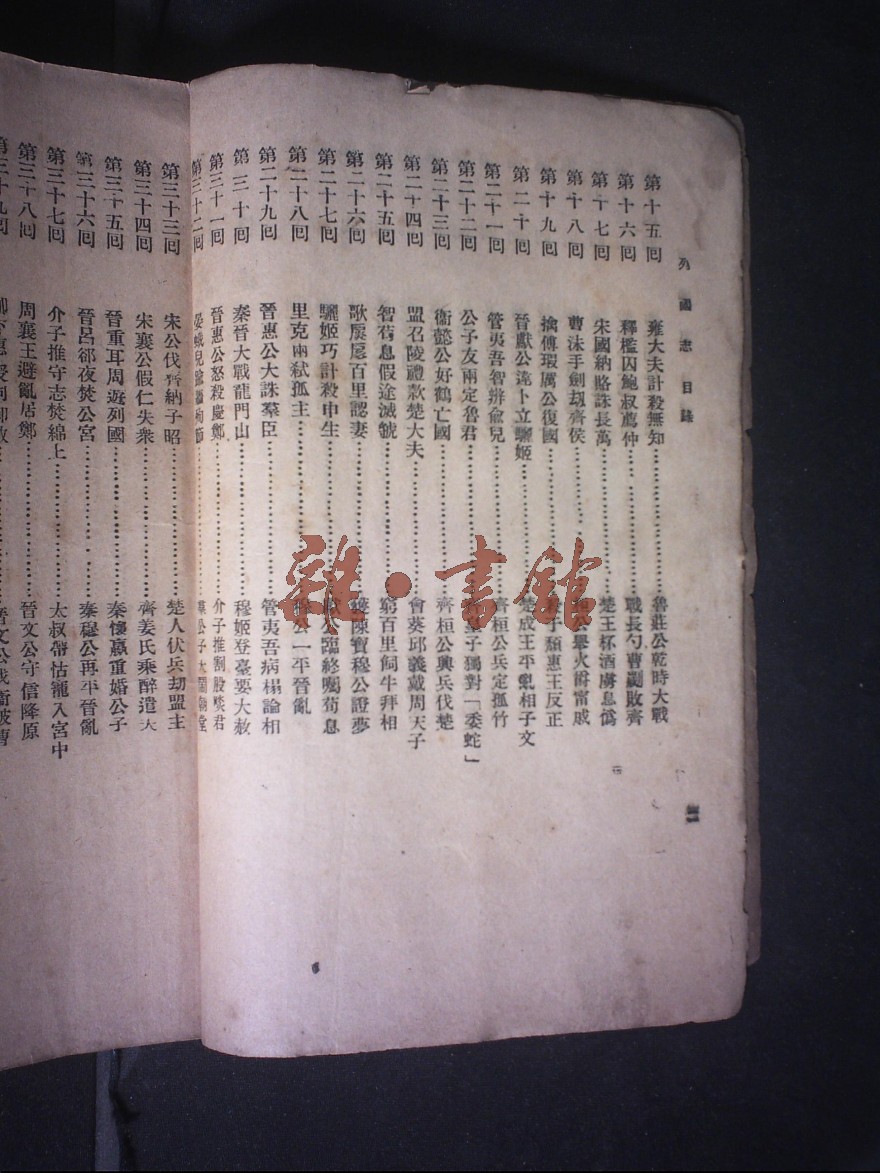 列國志目錄
第十五回 雍大夫計殺無知………魯莊公乾時大戰
第十六回 釋檻囚鮑叔薦仲………戰長勺曹劌敗齊
第十七回 宋國納賂誅長萬………楚王杯酒虜息媯
第十八回 曹沬手劍劫齊侯………桓公舉火爵甯戚
第十九回 擒傅瑕厲公復國………子頹惠王反正
第二十回 晉獻公違卜立驪姬………楚成王平亂相子文
第二十一回 管夷吾智辨俞兒………齊桓公兵定孤竹
第二十二回 公子友兩定魯君………皇子獨對「委蛇」
第二十三回 衞懿公好鶴亡國………齊桓公興兵伐楚
第二十四回 盟召陵禮款楚大夫………會葵邱義戴周天子
第二十五回 智荀息假途滅虢………窮百里飼牛拜相
第二十六回 歌扊扅百里認妻………獲陳寶穆公證夢
第二十七回 驪姬巧計殺申生………公臨終囑荀息
第二十八回 里克兩弒孤主………穆公一平晉亂
第二十九回 晉惠公大誅羣臣………管夷吾病榻論相
第三十回 秦晉大戰龍門山………穆姬登臺要大赦
第三十一回 晉惠公怒殺慶鄭………介子推割股啖君
第三十二回 晏蛾兒踰牆殉節………羣公子大鬧朝堂
第三十三回 宋公伐齊納子昭………楚人伏兵劫盟主
第三十四回 宋襄公假仁失衆………齊姜氏乘醉遣夫
第三十五回 晉重耳周遊列國………秦懷嬴重婚公子
第三十六回 晉呂郤夜焚公宮………秦穆公再平晉亂
第三十七回 介子推守志焚綿上………太叔帶怙寵入宮中
第三十八回 周襄王避亂居鄭………晉文公守信降原
第三十九回
雜·書館